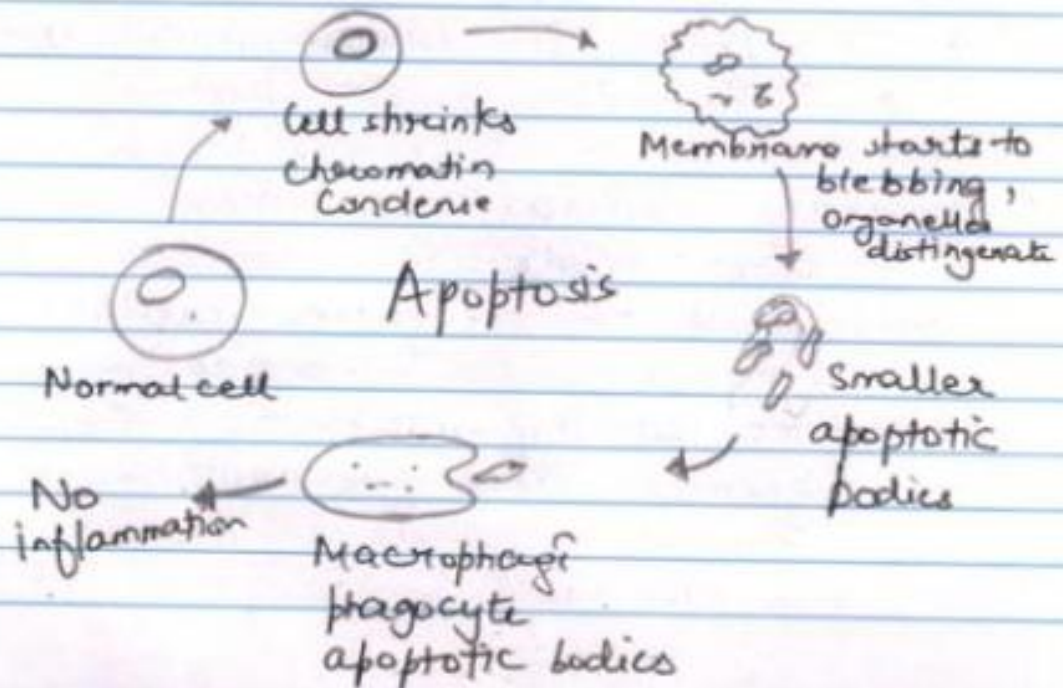 Cell shrinks
chromatin
Condense
Membrane starts to
blebbing,
organelles
distingenate
Apoptosis
Normal cell
Smaller
apoptotic
bodies
No
inflammation
Macrophage
phagocyte
apoptotic bodies